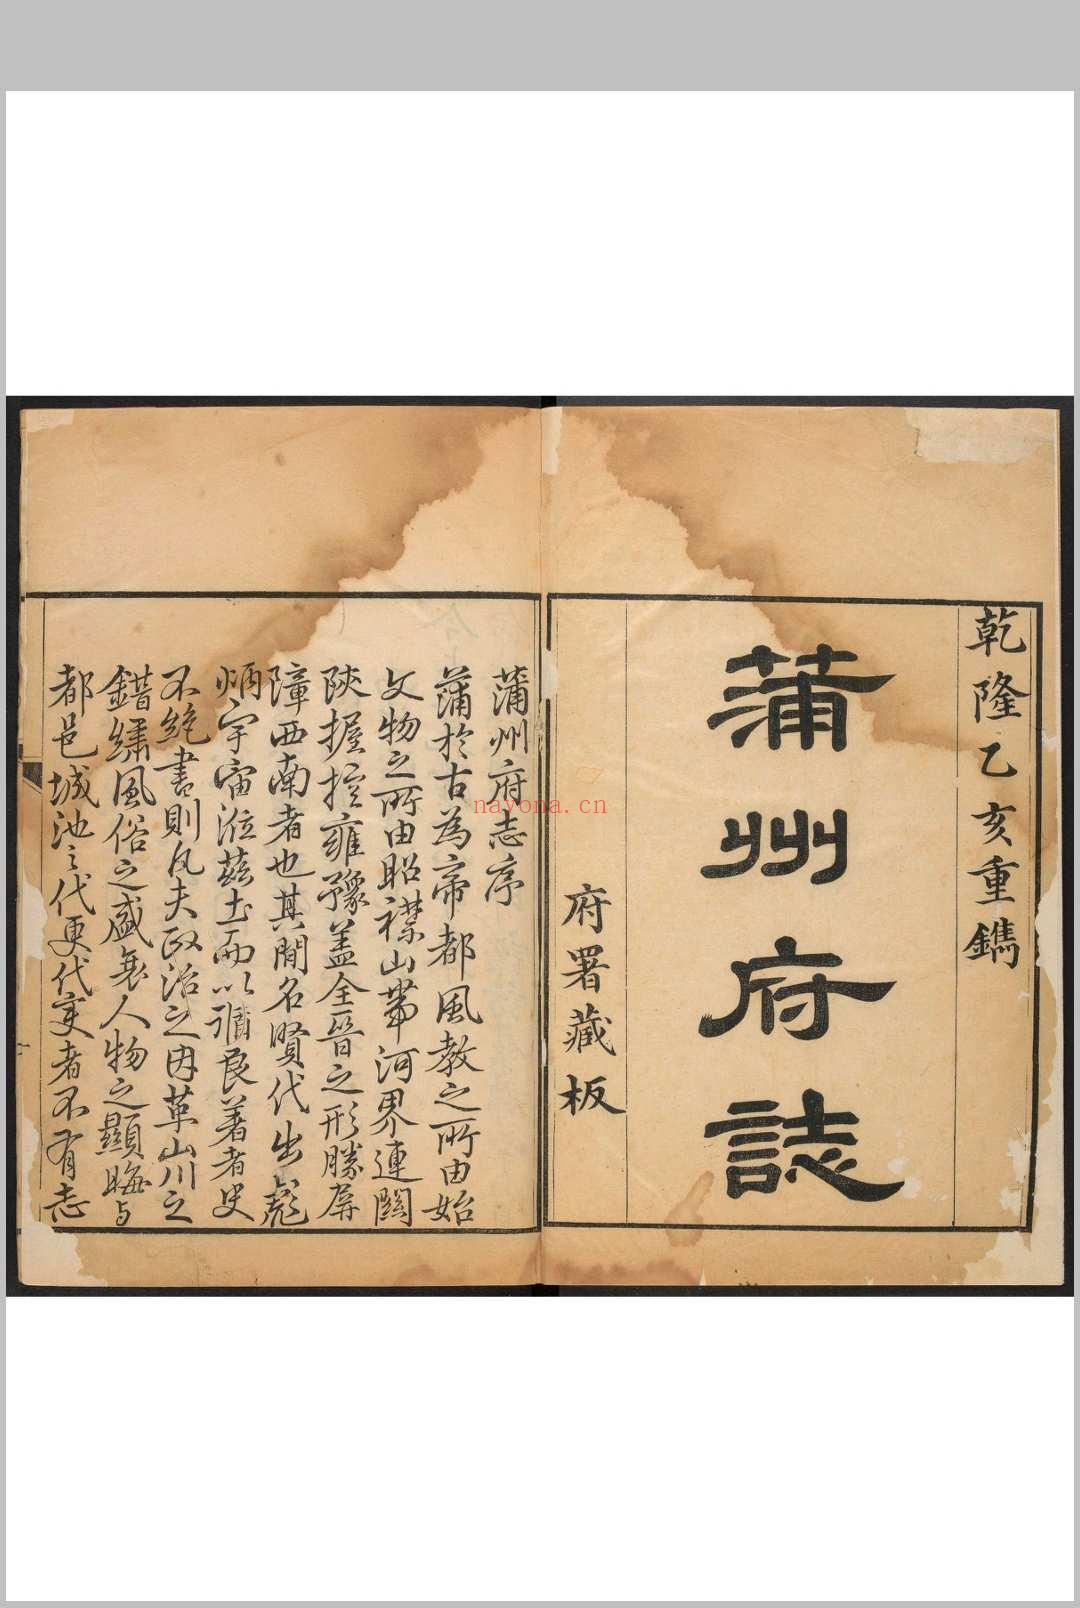 乾隆乙亥重鐫
蒲州府誌
府署藏板
蒲州府志序
蒲於古為帝都風教之所由始
文物之所由昭襟山帶河界連關
陝握控雍豫蓋全晉之形勝屏
障西南者也其間名賢代出彪
炳宇宙涖茲土而以循良著者史
不絕書則凡夫政治之因革山川之
錯繡風俗之盛衰人物之顯晦與
都邑城池之代更代變者不有志
nayona.cn